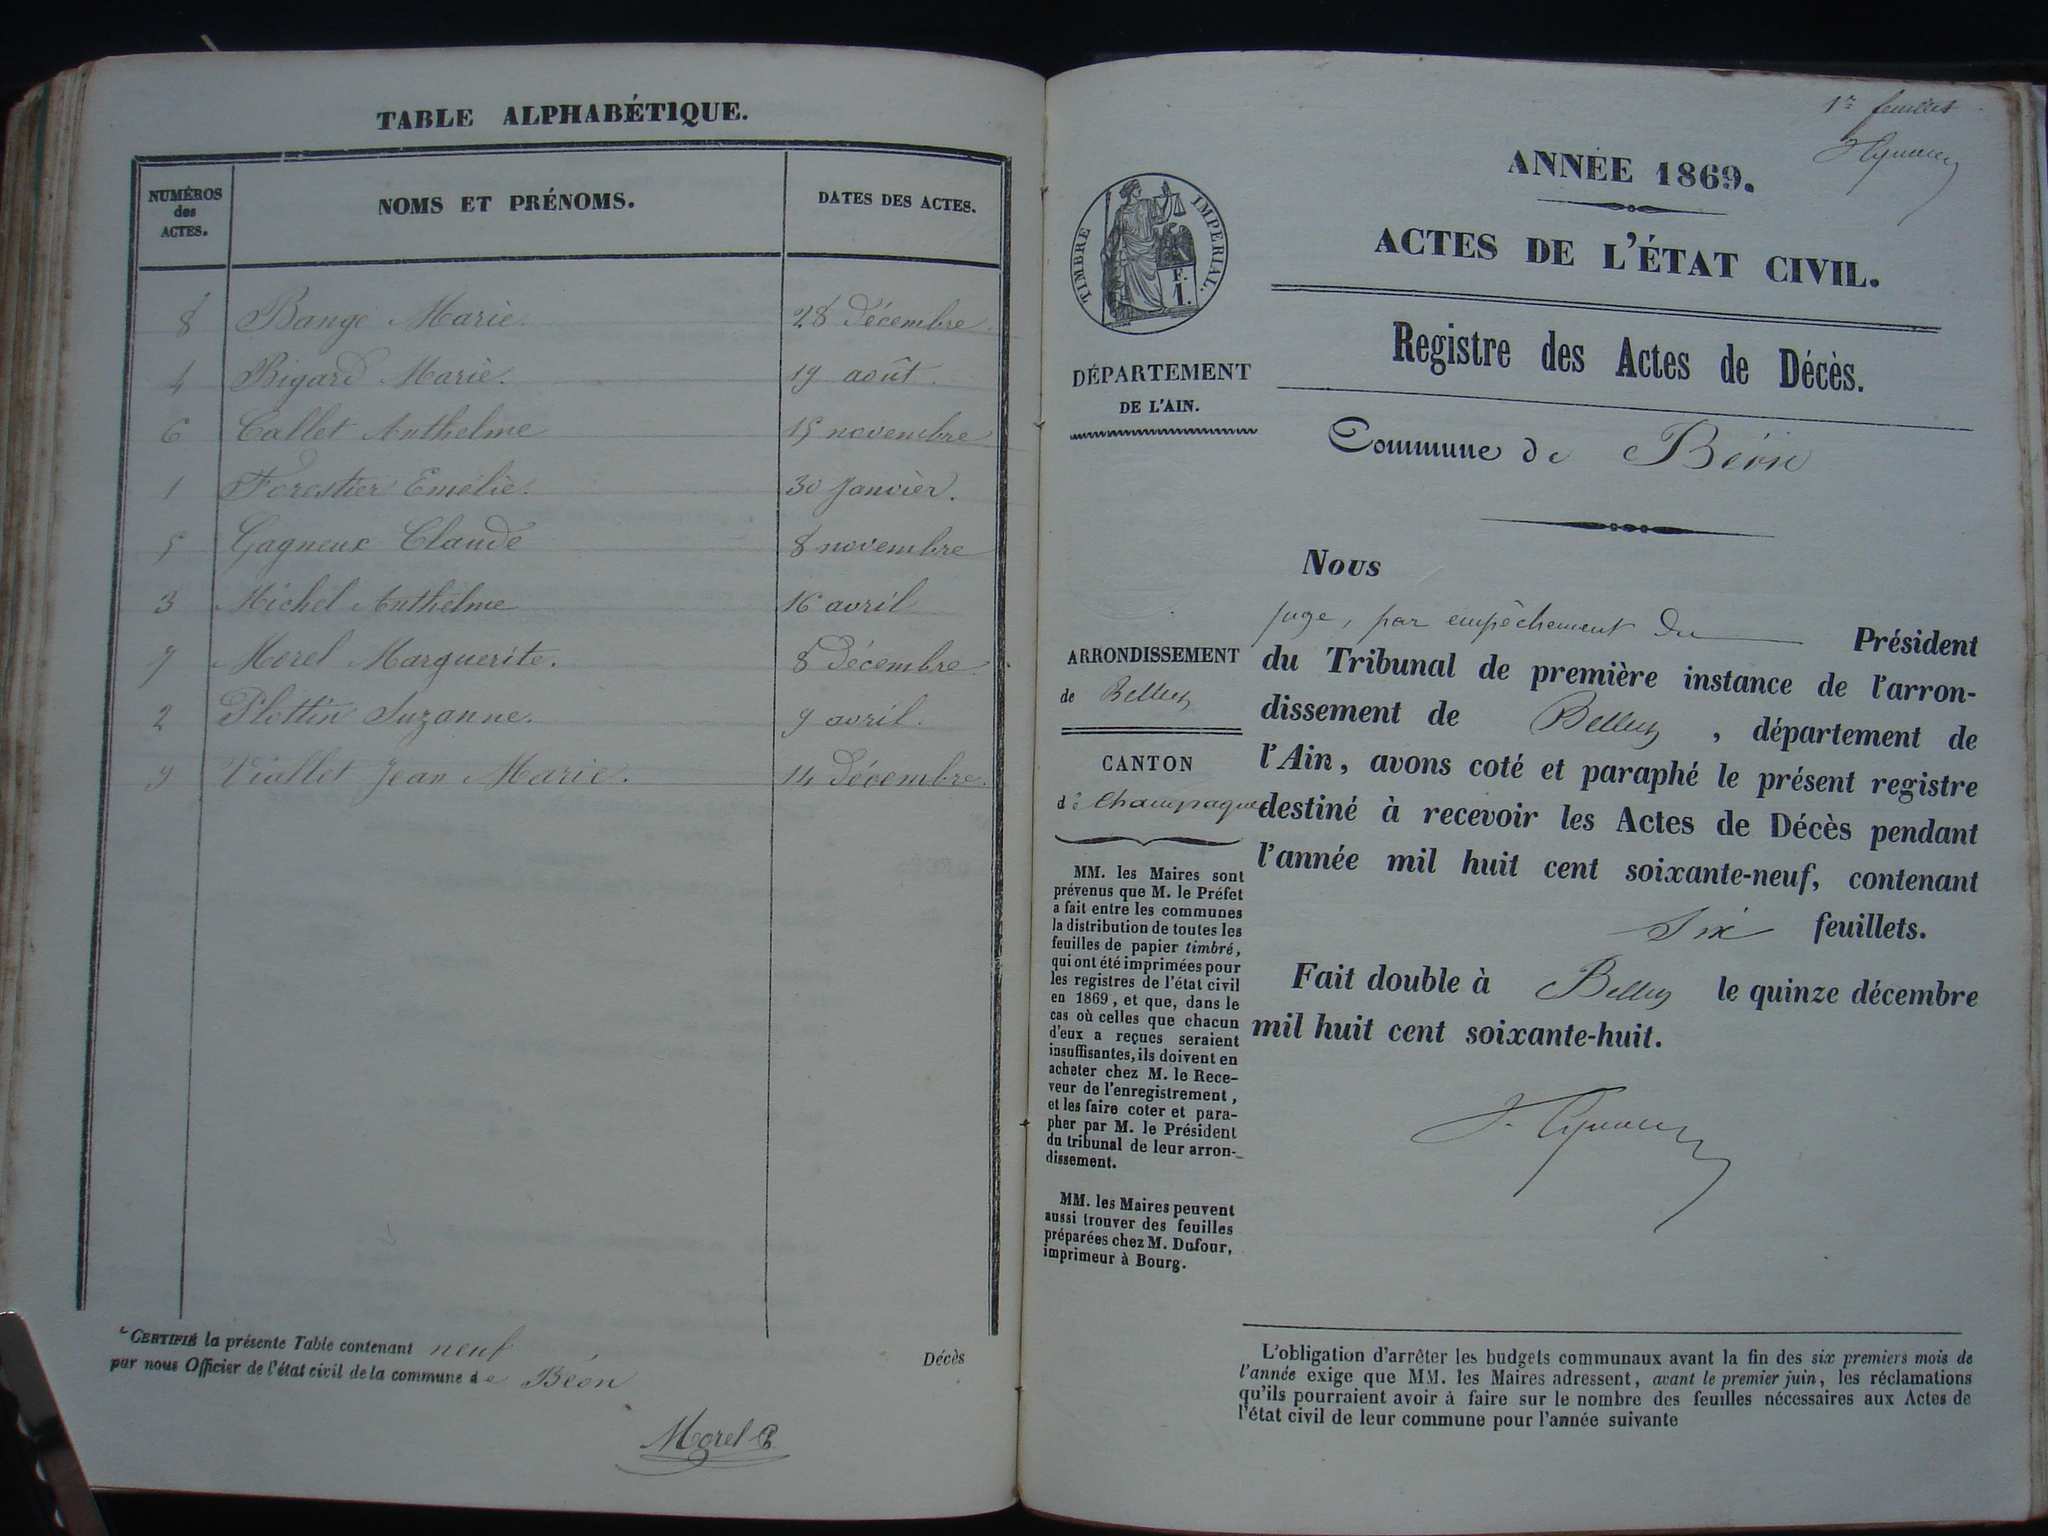 TABLE ALPHABÉTIQUE.
NUMÉROS des ACTES.
NOMS ET PRÉNOMS.
DATES DES ACTES.
8 Bange Marie. 28 décembre.
4 Bigard Marie. 19 août.
6 Callet Anthelme 15 novembre
1 Forestier Emélie. 30 Janvier.
5 Gagneux Claude 8 novembre
3 Michel Anthelme 16 avril
7 Morel Marguerite. 8 décembre
2 Plottin Suzanne. 9 avril.
9 Viallet Jean Marie. 14 décembre.
CERTIFIÉ la présente Table contenant neuf Décès
par nous Officier de l'état civil de la commune de Béon
Morel
1er feuillet
ANNÉE 1869.
ACTES DE L'ÉTAT CIVIL.
TIMBRE IMPERIAL.
F. 1.
Registre des Actes de Décès.
DÉPARTEMENT
DE L'AIN.
Commune de Béon
Nous
juge, par empêchement du Président
du Tribunal de première instance de l'arron-
dissement de Belley, département de
l'Ain, avons coté et paraphé le présent registre
destiné à recevoir les Actes de Décès pendant
l'année mil huit cent soixante-neuf, contenant
Six feuillets.
Fait double à Belley le quinze décembre
mil huit cent soixante-huit.
ARRONDISSEMENT
de Belley
CANTON
de Champagne
MM. les Maires sont
prévenus que M. le Préfet
a fait entre les communes
la distribution de toutes les
feuilles de papier timbré,
qui ont été imprimées pour
les registres de l'état civil
en 1869, et que, dans le
cas où celles que chacun
d'eux a reçues seraient
insuffisantes, ils doivent en
acheter chez M. le Rece-
veur de l'enregistrement,
et les faire coter et para-
pher par M. le Président
du tribunal de leur arron-
dissement.
MM. les Maires peuvent
aussi trouver des feuilles
préparées chez M. Dufour,
imprimeur à Bourg.
L'obligation d'arrêter les budgets communaux avant la fin des six premiers mois de
l'année exige que MM. les Maires adressent, avant le premier juin, les réclamations
qu'ils pourraient avoir à faire sur le nombre des feuilles nécessaires aux Actes de
l'état civil de leur commune pour l'année suivante